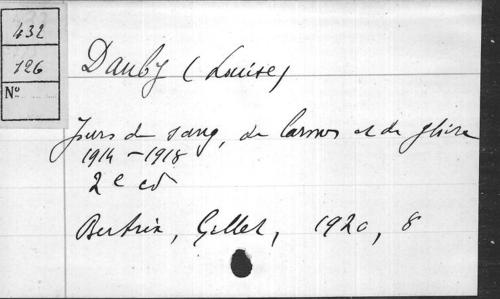 432
126
Nº
Dauby (Louise)
Jours de sang, de larmes et de gloire
1914-1918
2e ed
Bertrix, Gillet, 1920, 8